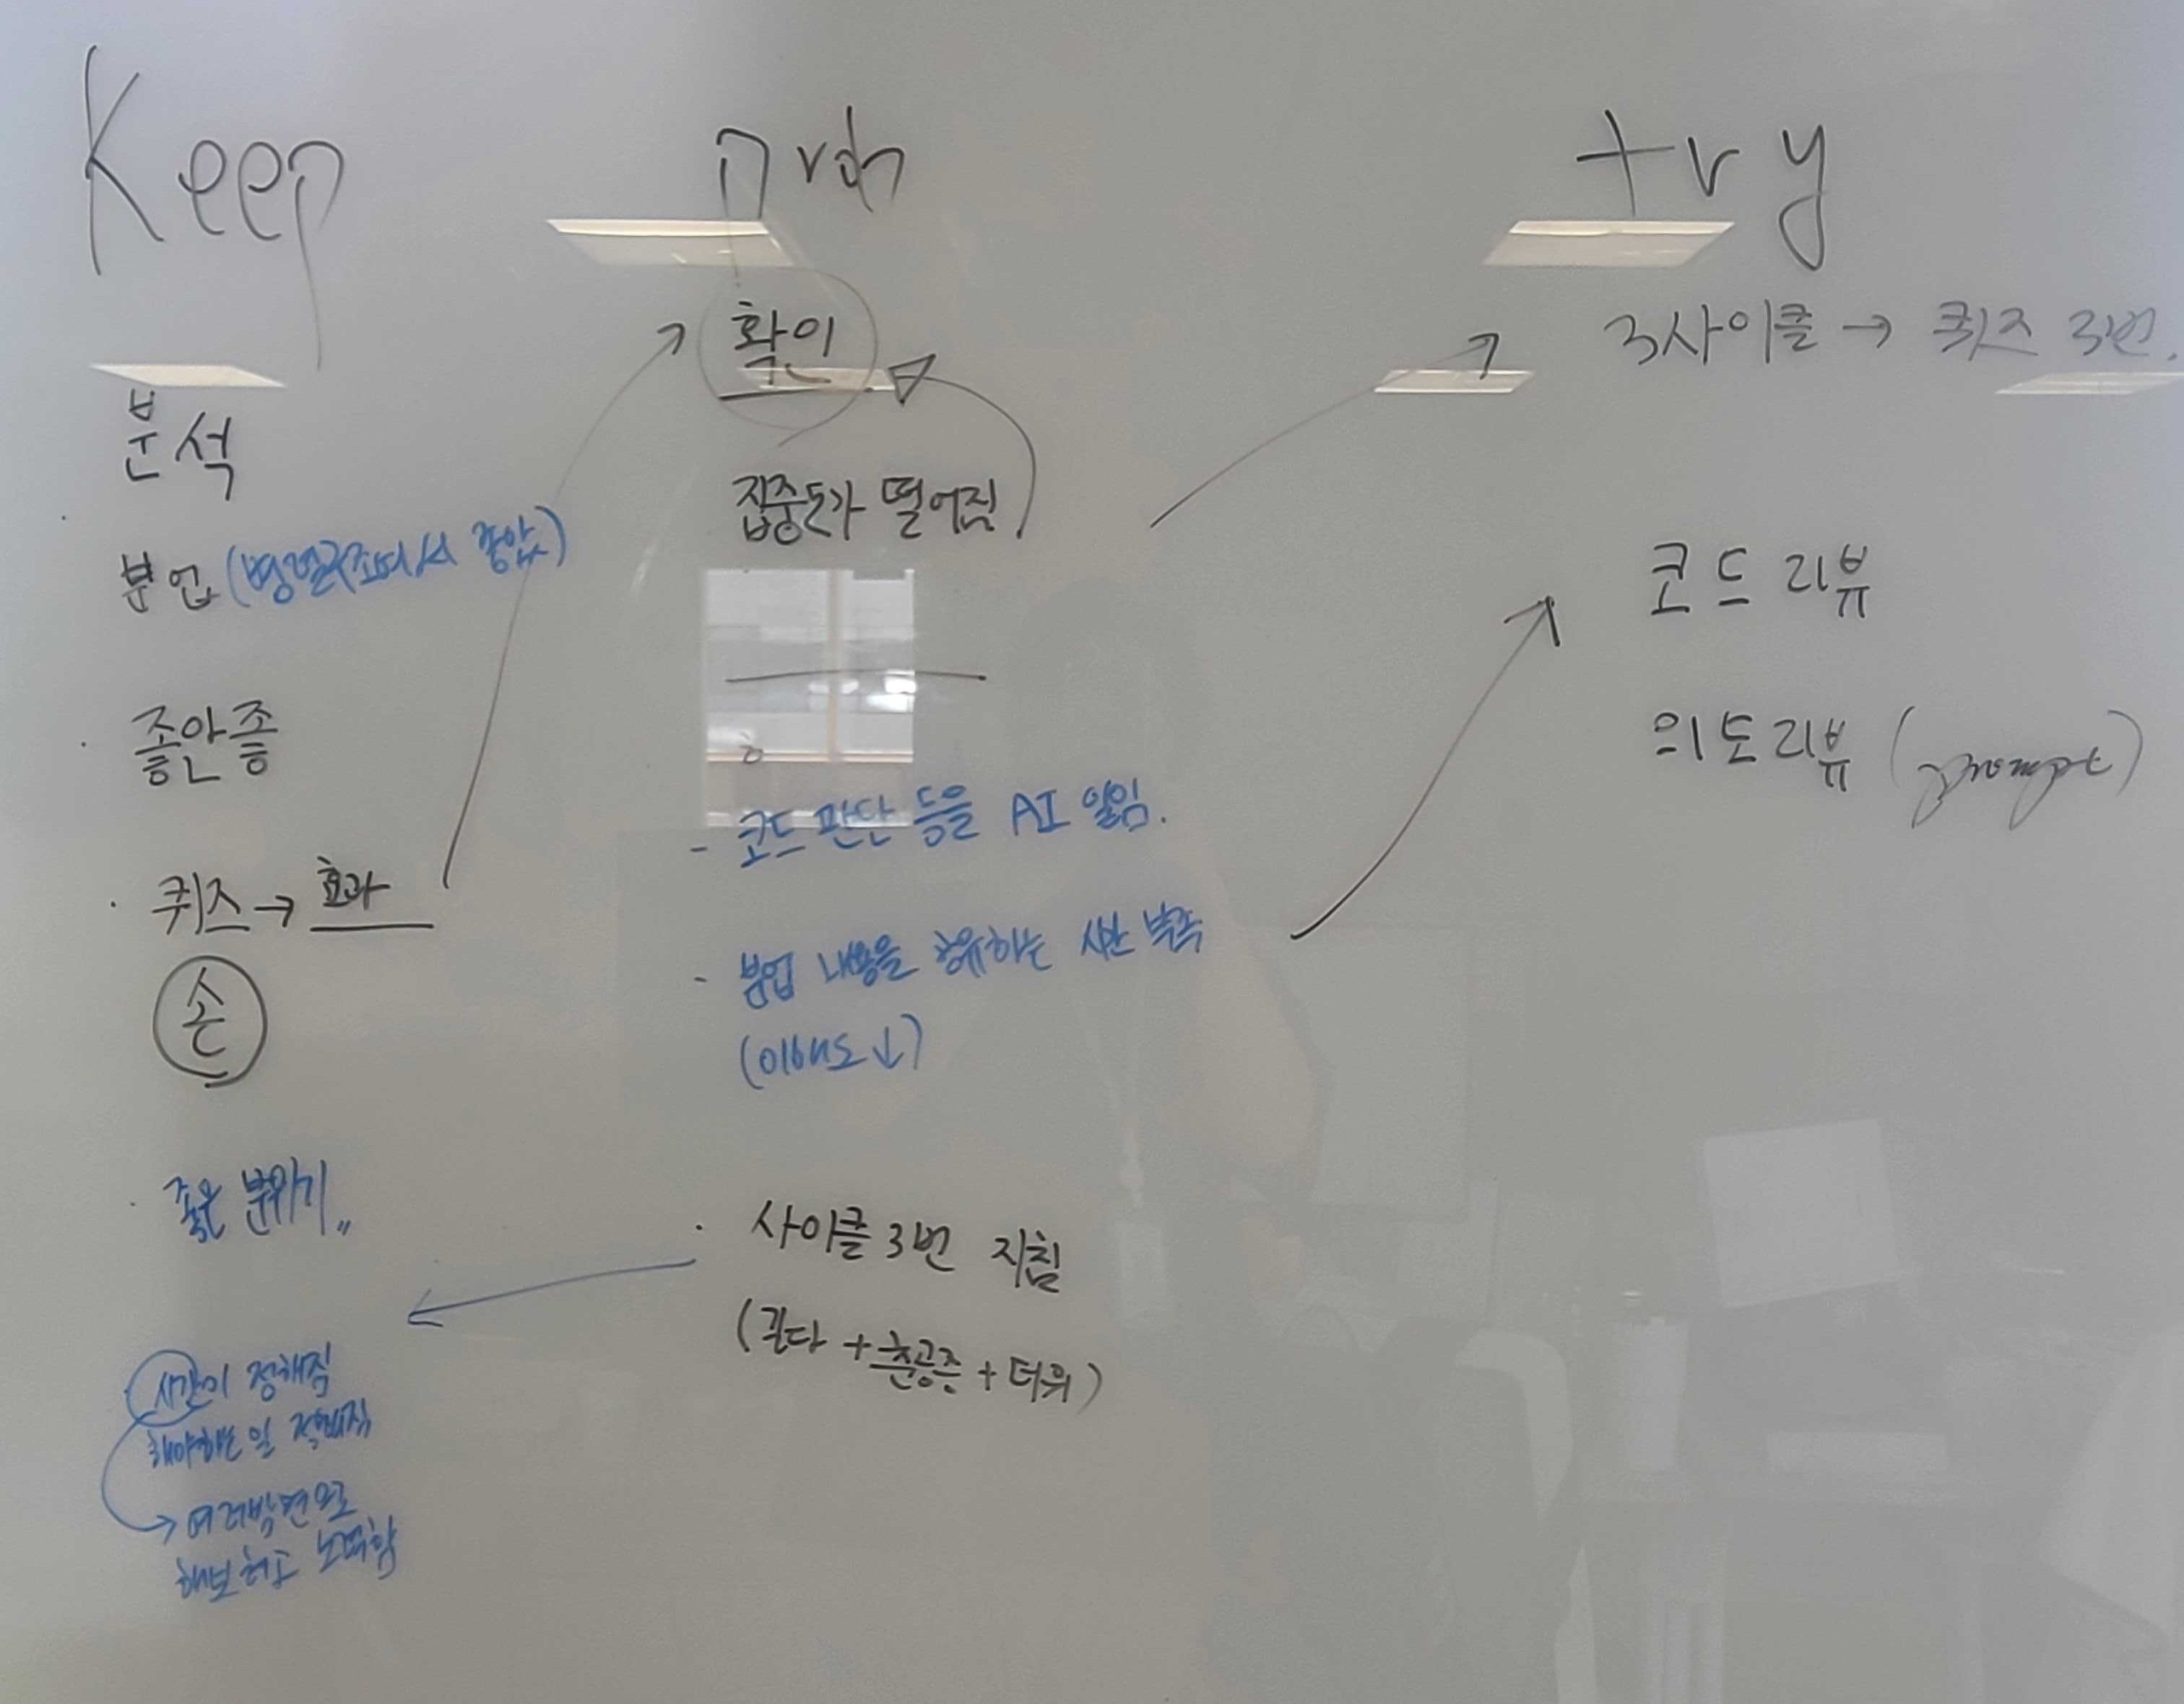 Keep
분석
분업 (병렬구조여서 좋았)
좋안좋
퀴즈 → 효과
손
좋은 분위기
시간이 정해짐
해야하는 일 정해짐
→ 여러방면으로
해보려고 노력함
prob
확인
집중도가 떨어짐
- 코드 판단 등을 AI 일임.
- 분업 내용을 공유하는 시간 부족
(이해도 ↓)
사이클 3번 지침
(길다 + 춘공증 + 더위)
try
3사이클 → 퀴즈 3번.
코드 리뷰
의도 리뷰 (prompt)